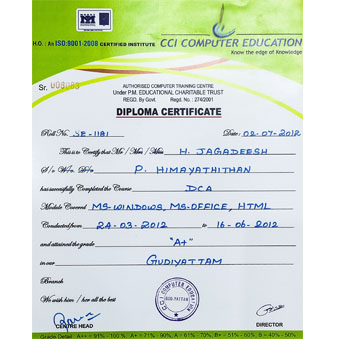 H.O.: An ISO:9001-2008 CERTIFIED INSTITUTE
CCI COMPUTER EDUCATION
Know the edge of Knowledge
Sr.
AUTHORISED COMPUTER TRAINING CENTRE
Under P.M. EDUCATIONAL CHARITABLE TRUST
REGD. By Govt. Regd. No.: 274/2001
DIPLOMA CERTIFICATE
Roll No. SE-1181 Date: 02-07-2012
This is to Certify that Mr / Mrs / Miss H. JAGADEESH
S/o W/o D/o P. HIMAYATHITHAN
has successfully Completed the Course DCA
Module Covered MS-WINDOWS, MS-OFFICE, HTML
Conducted from 24-03-2012 to 16-06-2012
and attained the grade "A+"
in our GUDIYATTAM
Branch
We wish him / her all the best
C.C.I. COMPUTER EDUCATION
GUDIYATTAM
CENTRE HEAD DIRECTOR
Grade Detail: A++ = 91% - 100% A+ = 71% - 90%, A = 61% - 70%, B+ = 51% - 60%, B = 40% - 50%